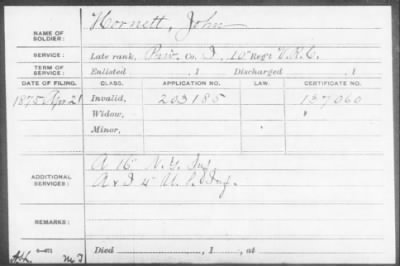 NAME OF SOLDIER: Hornett, John
SERVICE: Late rank, Priv. Co. I, 10" Reg't V.R.C.
TERM OF SERVICE: Enlisted , 1 Discharged , 1
DATE OF FILING. CLASS. APPLICATION NO. LAW. CERTIFICATE NO.
1875 Apr 21 Invalid, 203185 137060
Widow, "
Minor,
ADDITIONAL SERVICES: A 16" N.Y. Inf
A & I 4" U.S. Inf.
REMARKS:
Died , 1 , at